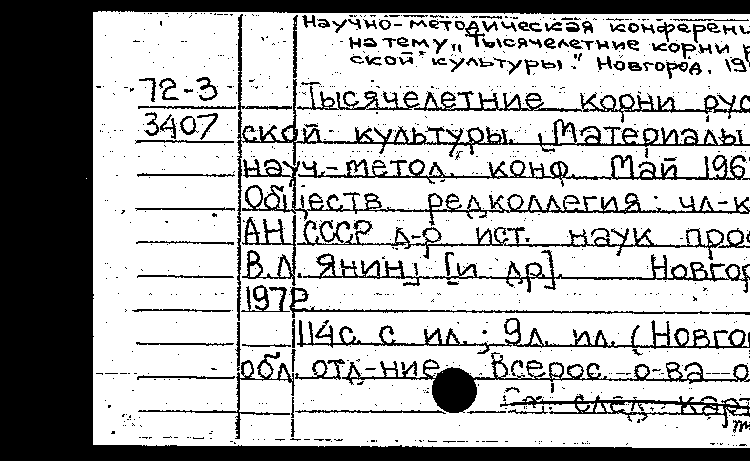 Научно-методическая конферени
на тему „Тысячелетние корни р
ской культуры." Новгород, 19
72-3
Тысячелетние корни рус
3407
ской культуры. [Материалы
науч.-метод. конф. Май 196
Обществ. редколлегия: чл-к
АН СССР д-р ист. наук проф
В.Л. Янин] [и др]. Новгор
1972.
114с. с ил.; 9л. ил. (Новго
обл. отд-ние Всерос. о-ва о
См. след. карт